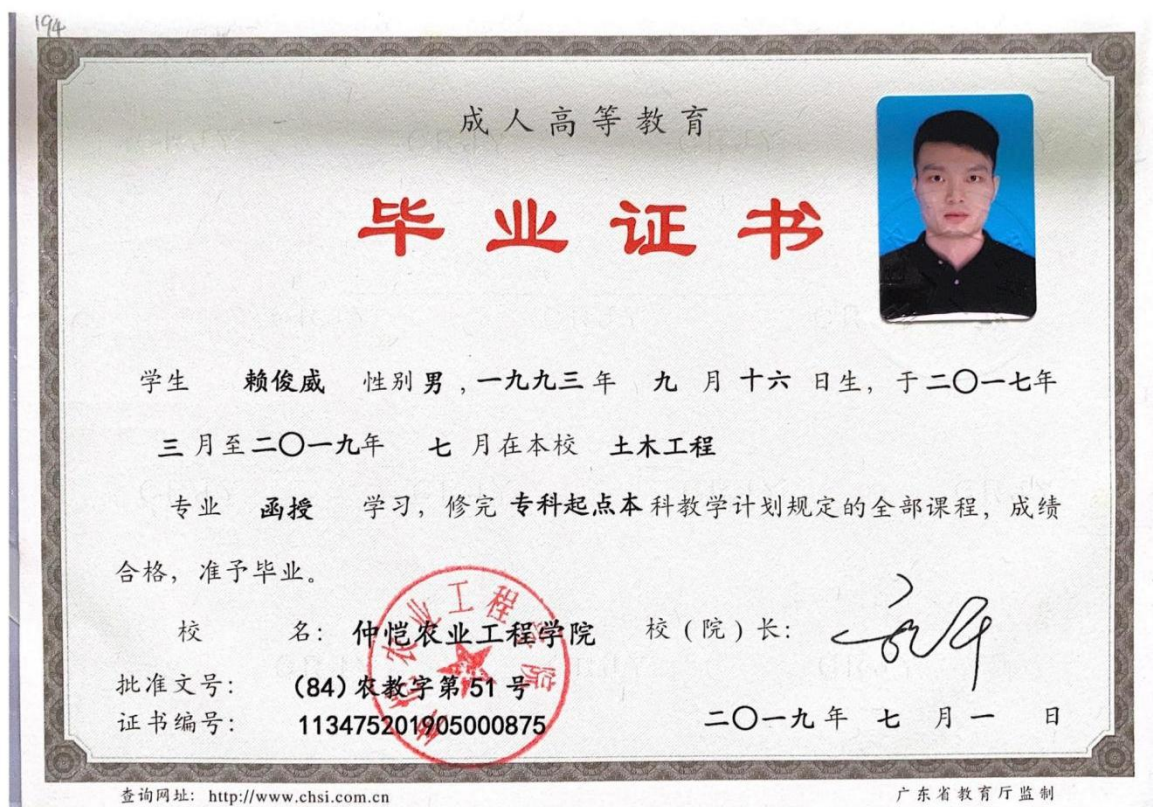 194
成人高等教育
毕业证书
学生 赖俊威 性别 男 , 一九九三 年 九 月 十六 日生, 于二〇一七年
三 月至二〇一九年 七 月在本校 土木工程
专业 函授 学习, 修完 专科起点本 科教学计划规定的全部课程, 成绩
合格, 准予毕业。
校 名: 仲恺农业工程学院 校(院)长:
批准文号: (84)农教字第 51 号
证书编号: 113475201905000875
二〇一九 年 七 月 一 日
仲恺农业工程学院
查询网址: http://www.chsi.com.cn
广东省教育厅监制